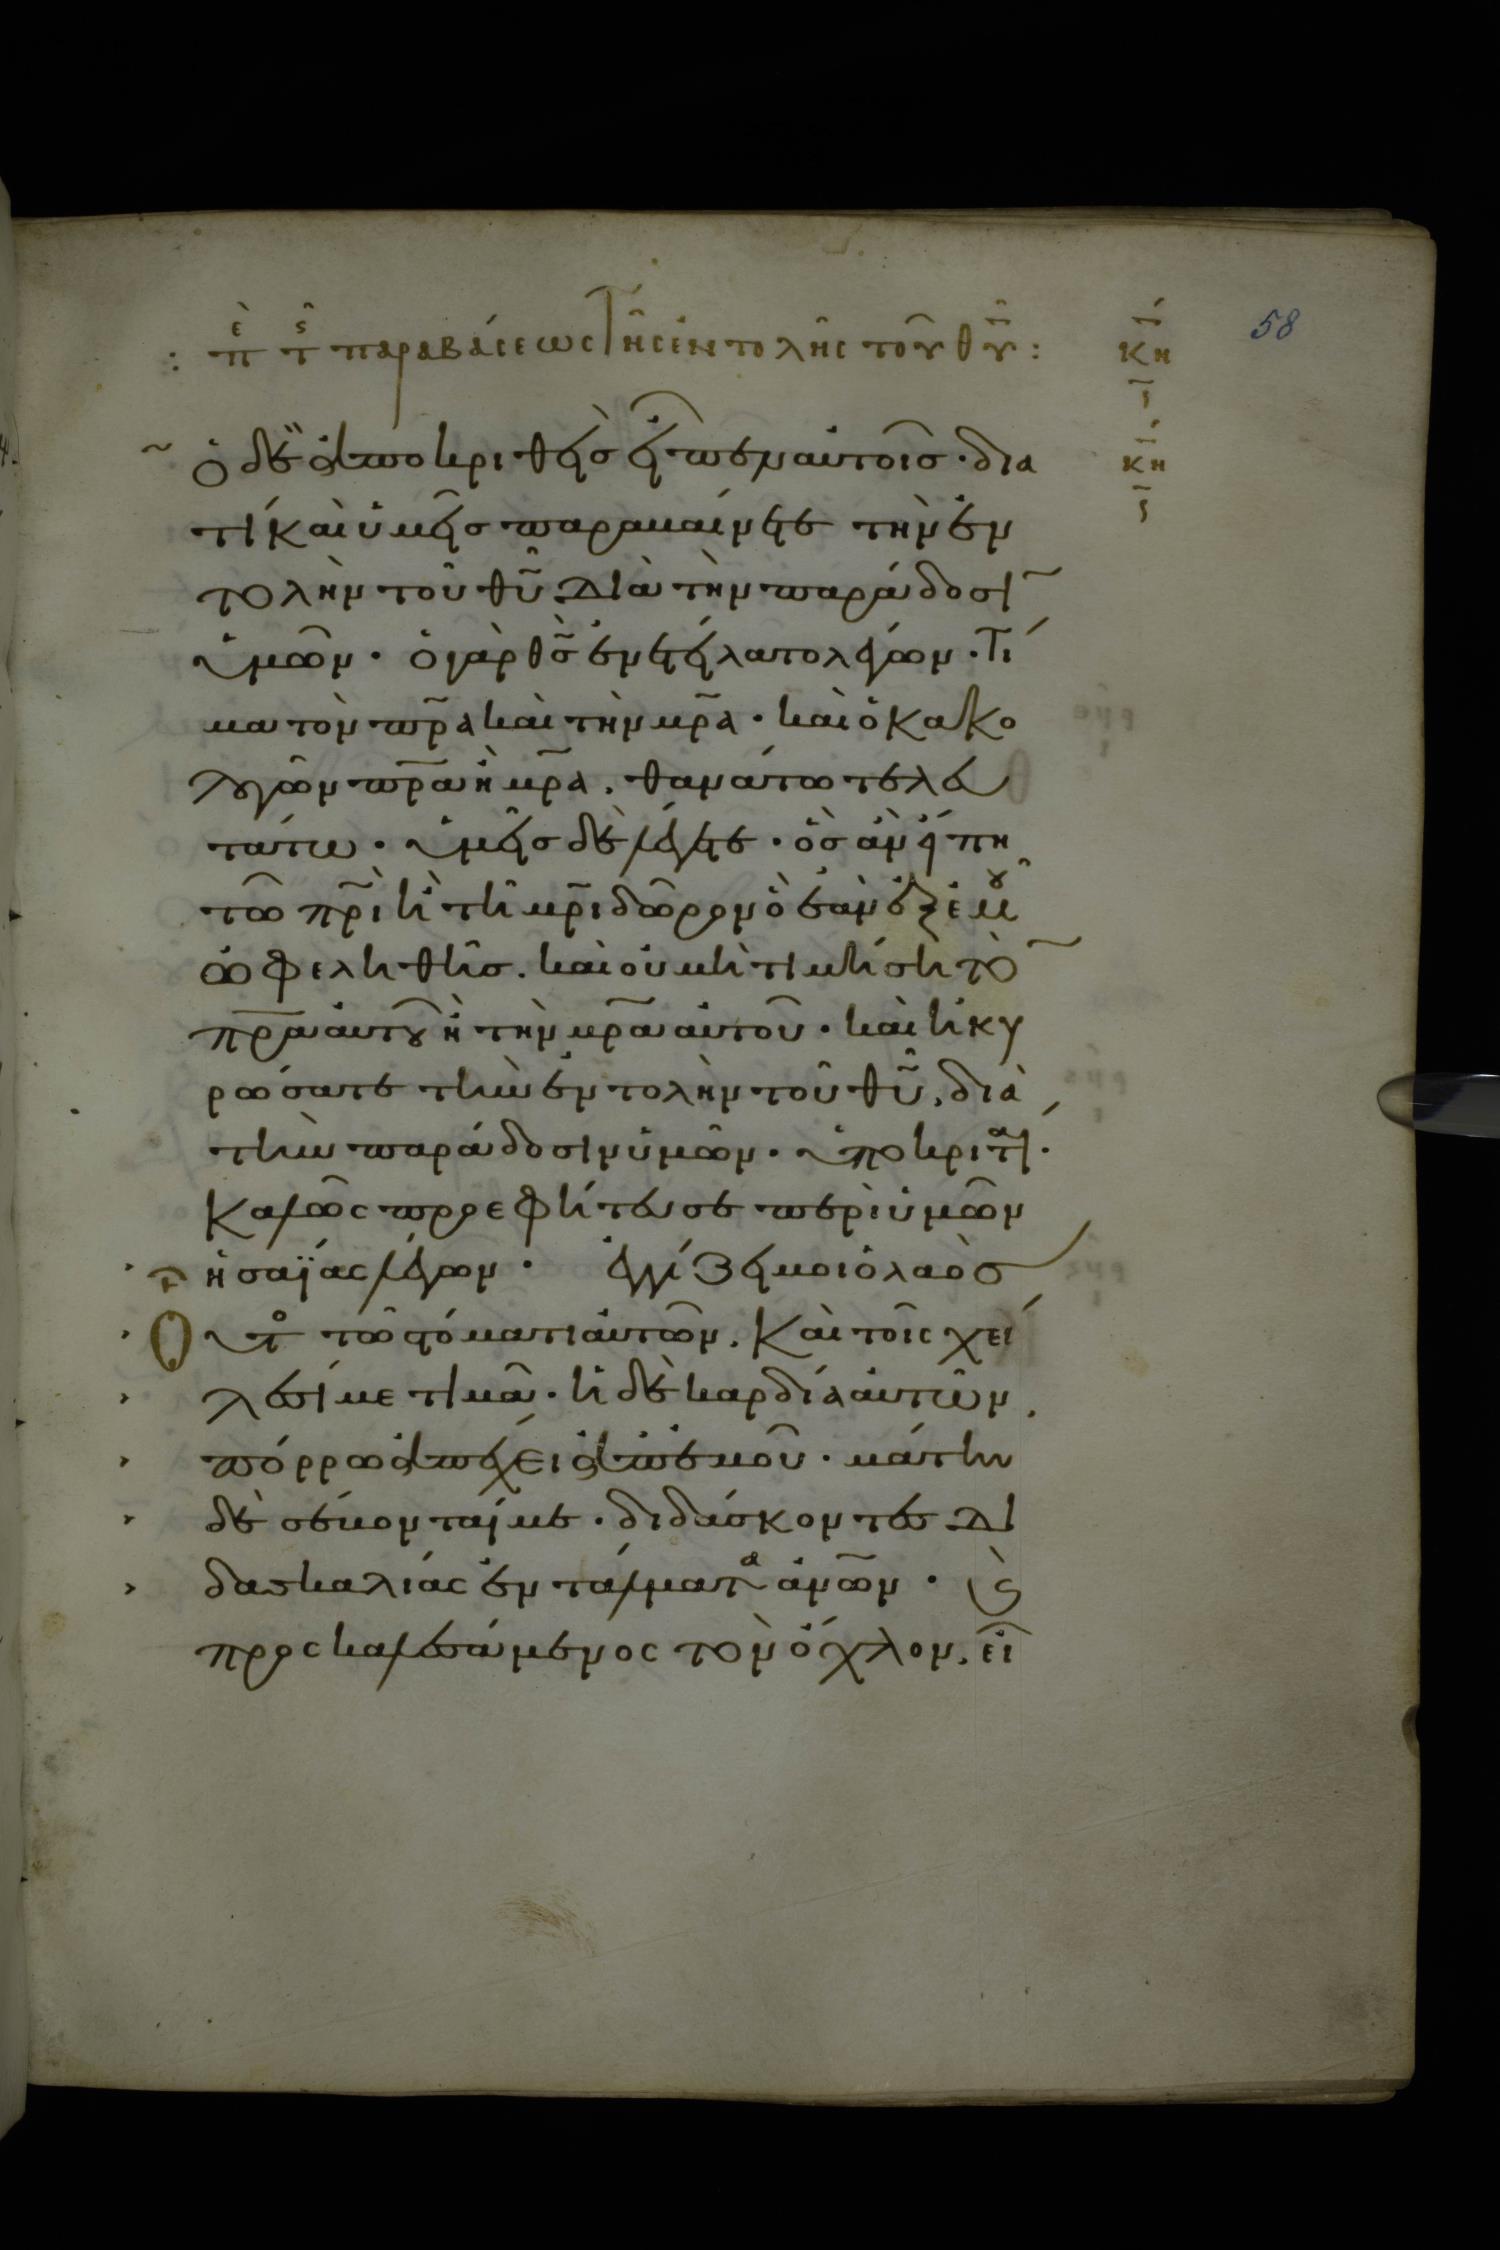 : π̀ε τς̑ παραβάσεως τῆς ἐντολῆς τοῦ θῦ :
κη
ς
58
ὁ δὲ ἀποκριθεὶσ εἶπεν αὐτοῖσ · δια
κη
ς
τί καὶ ὑμεῖσ παραβαίνετε τὴν ἐν
τολὴν τοῦ θῦ. διὰ τὴν παράδοσῖ
ὑμῶν · ὁ γὰρ θς̄ ἐνετείλατο λέγων · Τί
μα τὸν πρ̄α καὶ τὴν μρ̄α · καὶ ὁ κακο
λογῶν πρ̄α ἢ μρ̄α. θανάτω τελευ
τάτω · ὑμεῖσ δὲ λέγετε · ὃσ ἂν είπη
τῶ πρ̄ι ἢ τῆ μρ̄ι δῶρον ὃ ἐὰν ἐξ ἐμοῦ
ὠφεληθῆσ. καὶ οὐ μὴ τιμήση τὸ̄
πρ̄α αὐτοῦ ἢ τὴν μρ̄α αὐτοῦ · καὶ ἠκυ
ρώσατε τὴν ἐντολὴν τοῦ θῦ, διὰ
τὴν παράδοσιν ὑμῶν · ὑποκριταί ·
καλῶς προεφήτευσε περὶ ὑμῶν
ἠσαΐας λέγων · ἐγγίζει μοι ὁ λαὸσ
οὗτος τῶ στόματι αὐτῶν. καὶ τοῖς χεί
λεσί με τιμᾶ · ἡ δὲ καρδία αὐτῶν.
πόρρω ἀπέχει ἀπ' ἐμοῦ · μάτην
δὲ σέβονταί με · διδάσκοντες δι
δασκαλίας ἐντάλματα ἀνῶν · Καὶ
προσκαλεσάμενος τὸν ὄχλον, εἶ